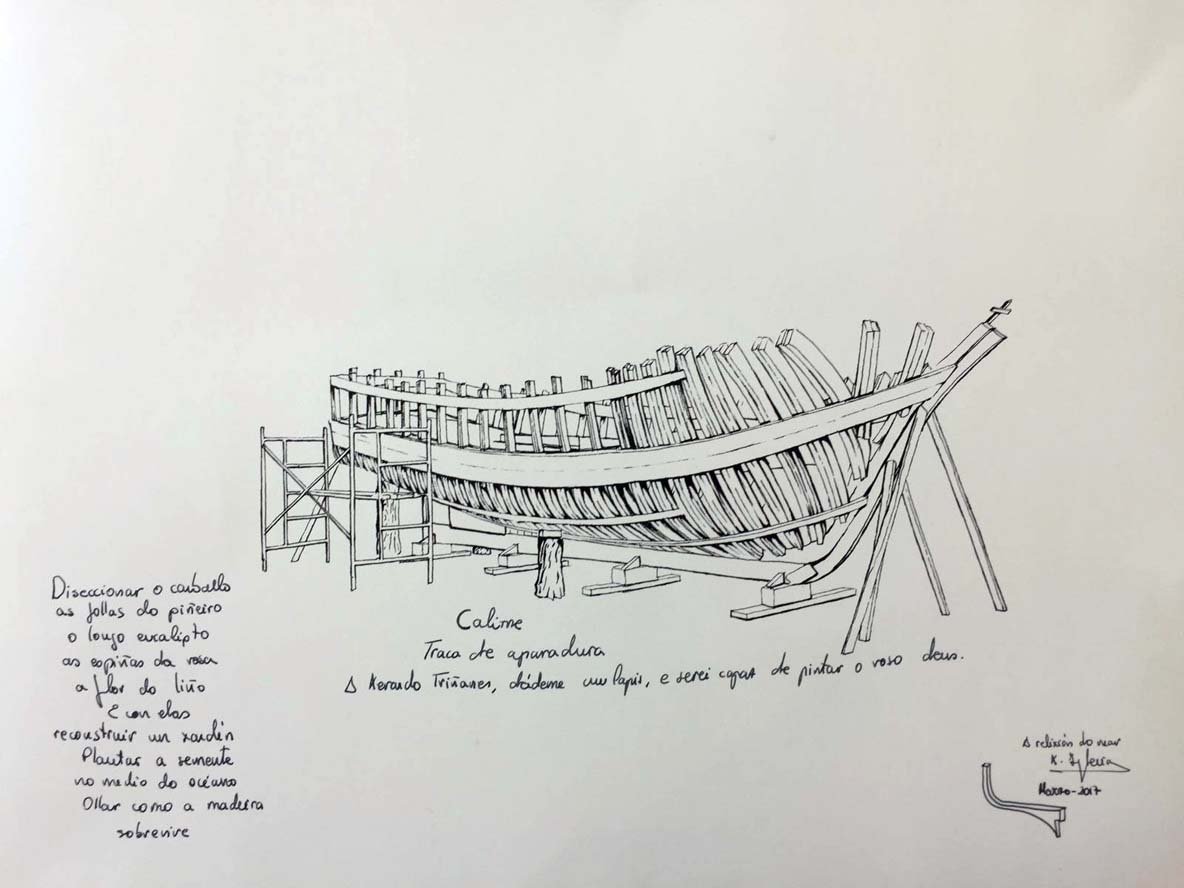 Diseccionar o carballo
as follas do piñeiro
o longo eucalipto
as espiñas da rosa
a flor do liño
E con elas
reconstruir un xardín
Plantar a semente
no medio do océano
Ollar como a madeira
sobrevive
Calime
Traca de aparadura
A Triñanes, dádeme un lapis, e serei capaz de pintar o voso deus.
A relixión do mar
K. Iglesia
Marzo-2017